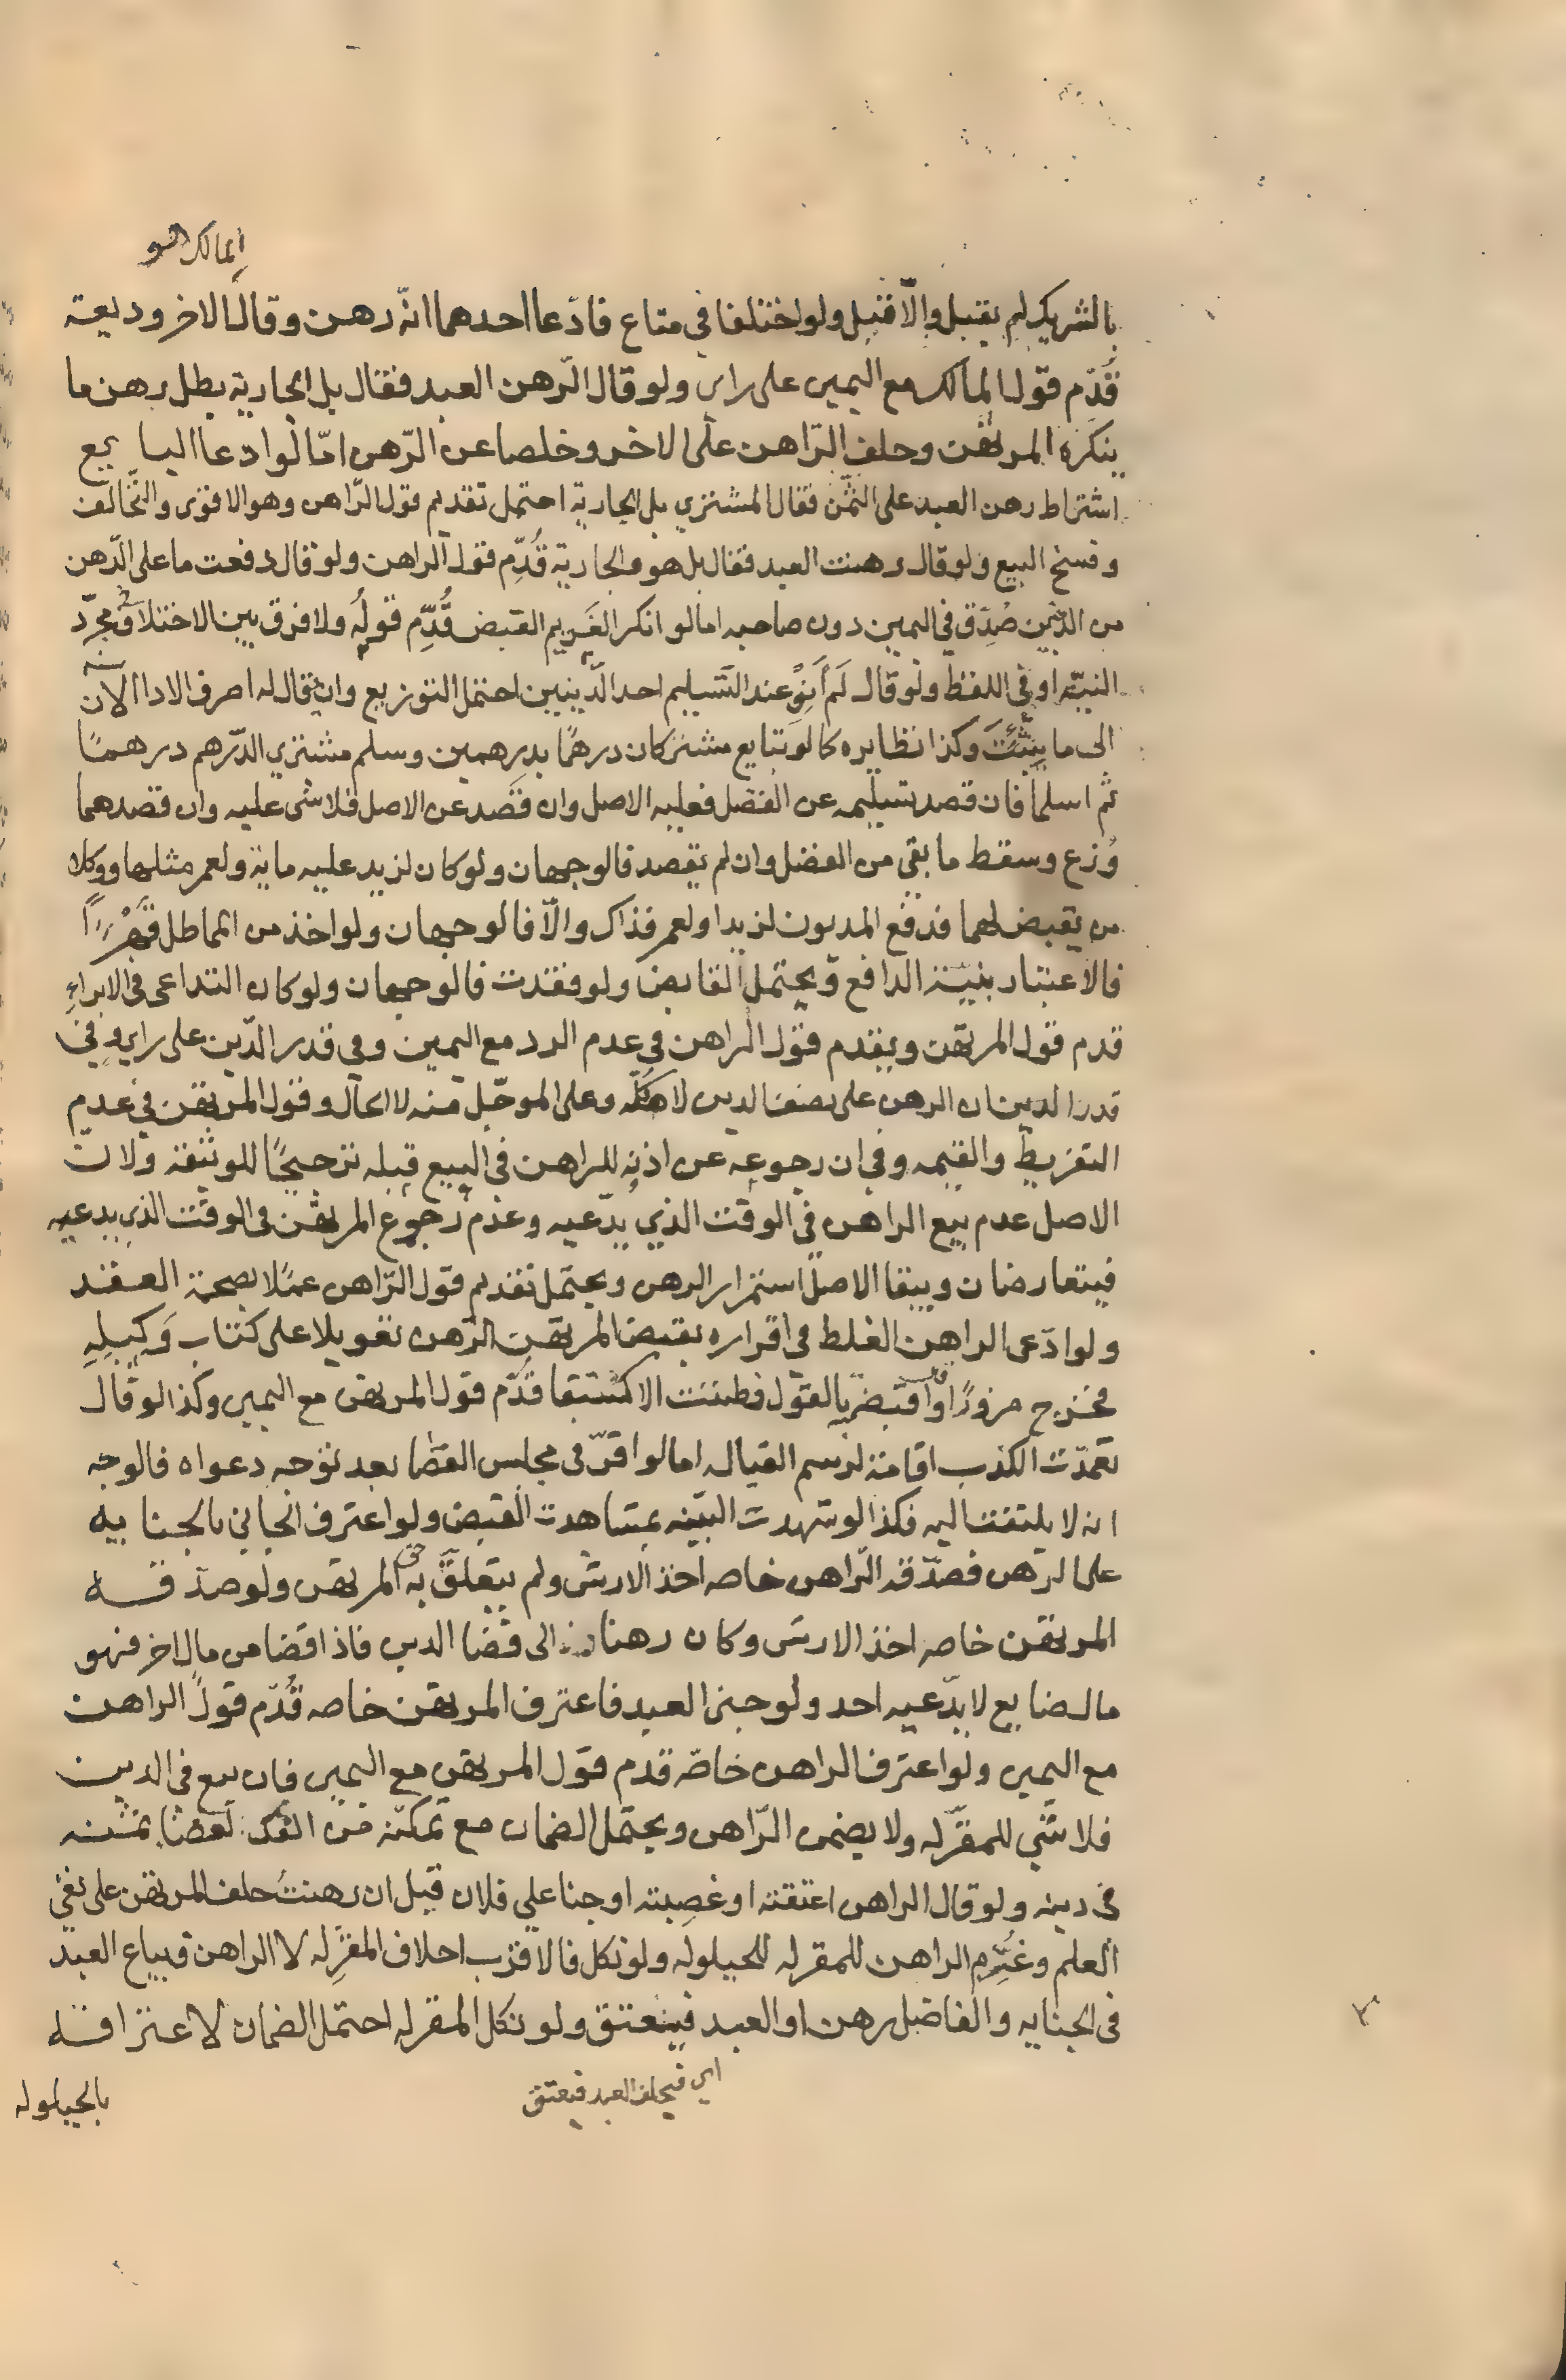 المالك هو
بالشريك لم يقبل والّا قبل ولو اختلفا في متاع فادّعا احدهما انّه رهن وقال الاخر وديعة
قُدّم قول المالك مع اليمين على راى ولو قال الرّهن العبد فقال بل الجارية بطل رهن ما
ينكره المرتهن وحلف الرّاهن على الاخر وخلصا عن الرّهن امّا لو ادعا البايع
اشتراط رهن العبد على الثمن فقال المشتري بل الجارية احتمل تقديم قول الرّاهن وهو الاقوى والتّخالف
وفسخ البيع ولو قال رهنت العبد فقال بل هو والجارية قُدّم قول الراهن ولو قال دفعت ما على الرّهن
من الدّين صُدّق في اليمين دون صاحبه اما لو انكر الغَريم القبض قُدّم قوله ولا فرق بين الاختلاف في مجرّد
النيّة او في اللفظ ولو قال لَم اَنوِ عند التّسليم احد الدّينين احتمل التوزيع وان يقال له اصرف الادا الآن
الى ما شئتَ وكذا نظايره كما لو تبايع مشتركان درهمًا بدرهمين وسلم مشتري الدّرهم درهمًا
ثم اسلما فان قصد تسليمه عن الفضل فعليه الاصل وان قصد عن الاصل فلا شى عليه وان قصدهما
وُزع وسقط ما بقى من الفضل وان لم يقصد فالوجهان ولو كان لزيد عليه ماية ولعمر مثلها ووكلا
من يقبض لهما فدفع المديون لزيد او لعمر فذاك والّا فالوجهان ولو اخذ من المماطل قَهْرًا
فالاعتبار بنيّة الدافع ويحتمل القابض ولو فقدت فالوجهان ولو كان التداعى في الابراءِ
قدم قول المرتهن ويقدم قول الراهن في عدم الرد مع اليمين وفي قدر الدّين على راي وفي
قدر الدين ان الرهن على نصف الدين لا كلّه وعلى الموجّل منه لا الحال وقول المرتهن في عدم
التفريط والقيمه وفي ان رجوعه عن اذنه للراهن في البيع قبله ترجيحًا للوثيقة ولان
الاصل عدم بيع الراهن في الوقت الذي يدّعيه وعدم رجوع المرتهن في الوقت الذي يدعيه
فيتعارضان ويبقا الاصل استمرار الرهن ويحتمل تقديم قول الرّاهن عملًا بصحة العقد
ولو ادّعى الراهن الغلط في اقراره بقبض المرتهن الرّهن تعويلا على كتاب وَكيلِهِ
فخرج مزورًا او اقبضه بالقول فظننت الاكتفا قُدّم قول المرتهن مع اليمين وكذا لو قال
تعمدّت الكذب اقامة لرسم القباله اما لو اقرّ في مجلس القضا بعد توجه دعواه فالوجه
انه لا يلتفت اليه فكذا لو شهدت البيّنه بمشاهدت القبض ولو اعترف الجاني بالجنايه
على الرّهن فصدّقه الرّاهن خاصه اخذ الارش ولم يتعلق به حق المرتهن ولو صدقه
المرتهن خاصه اخذ الارش وكان رهنا الى قضا الدين فاذا قضا من مال اخر فهو
مال ضايع لا يدّعيه احد ولو جنى العبد فاعترف المرتهن خاصه قُدّم قول الراهن
مع اليمين ولو اعترف الراهن خاصّه قدم قول المرتهن مع اليمين فان بيع في الدين
فلا شي للمقرّ له ولا يضمن الرّاهن ويحتمل الضمان مع تمكنّه من الفك لقضا بثمنه
في دينه ولو قال الراهن اعتقته او غصبته او جنا على فلان قبل ان رهنتُ حلف المرتهن على نفي
العلم وغُرّم الراهن للمقر له للحيلوله ولو نكل فالاقرب احلاف المقرّ له لا الراهن فيباع العبد
في الجنايه والفاضل رهن او العبد فينعتق ولو نكل المقر له احتمل الضمان لاعترافه
اي فيحلف العبد فيعتق
بالحيلوله